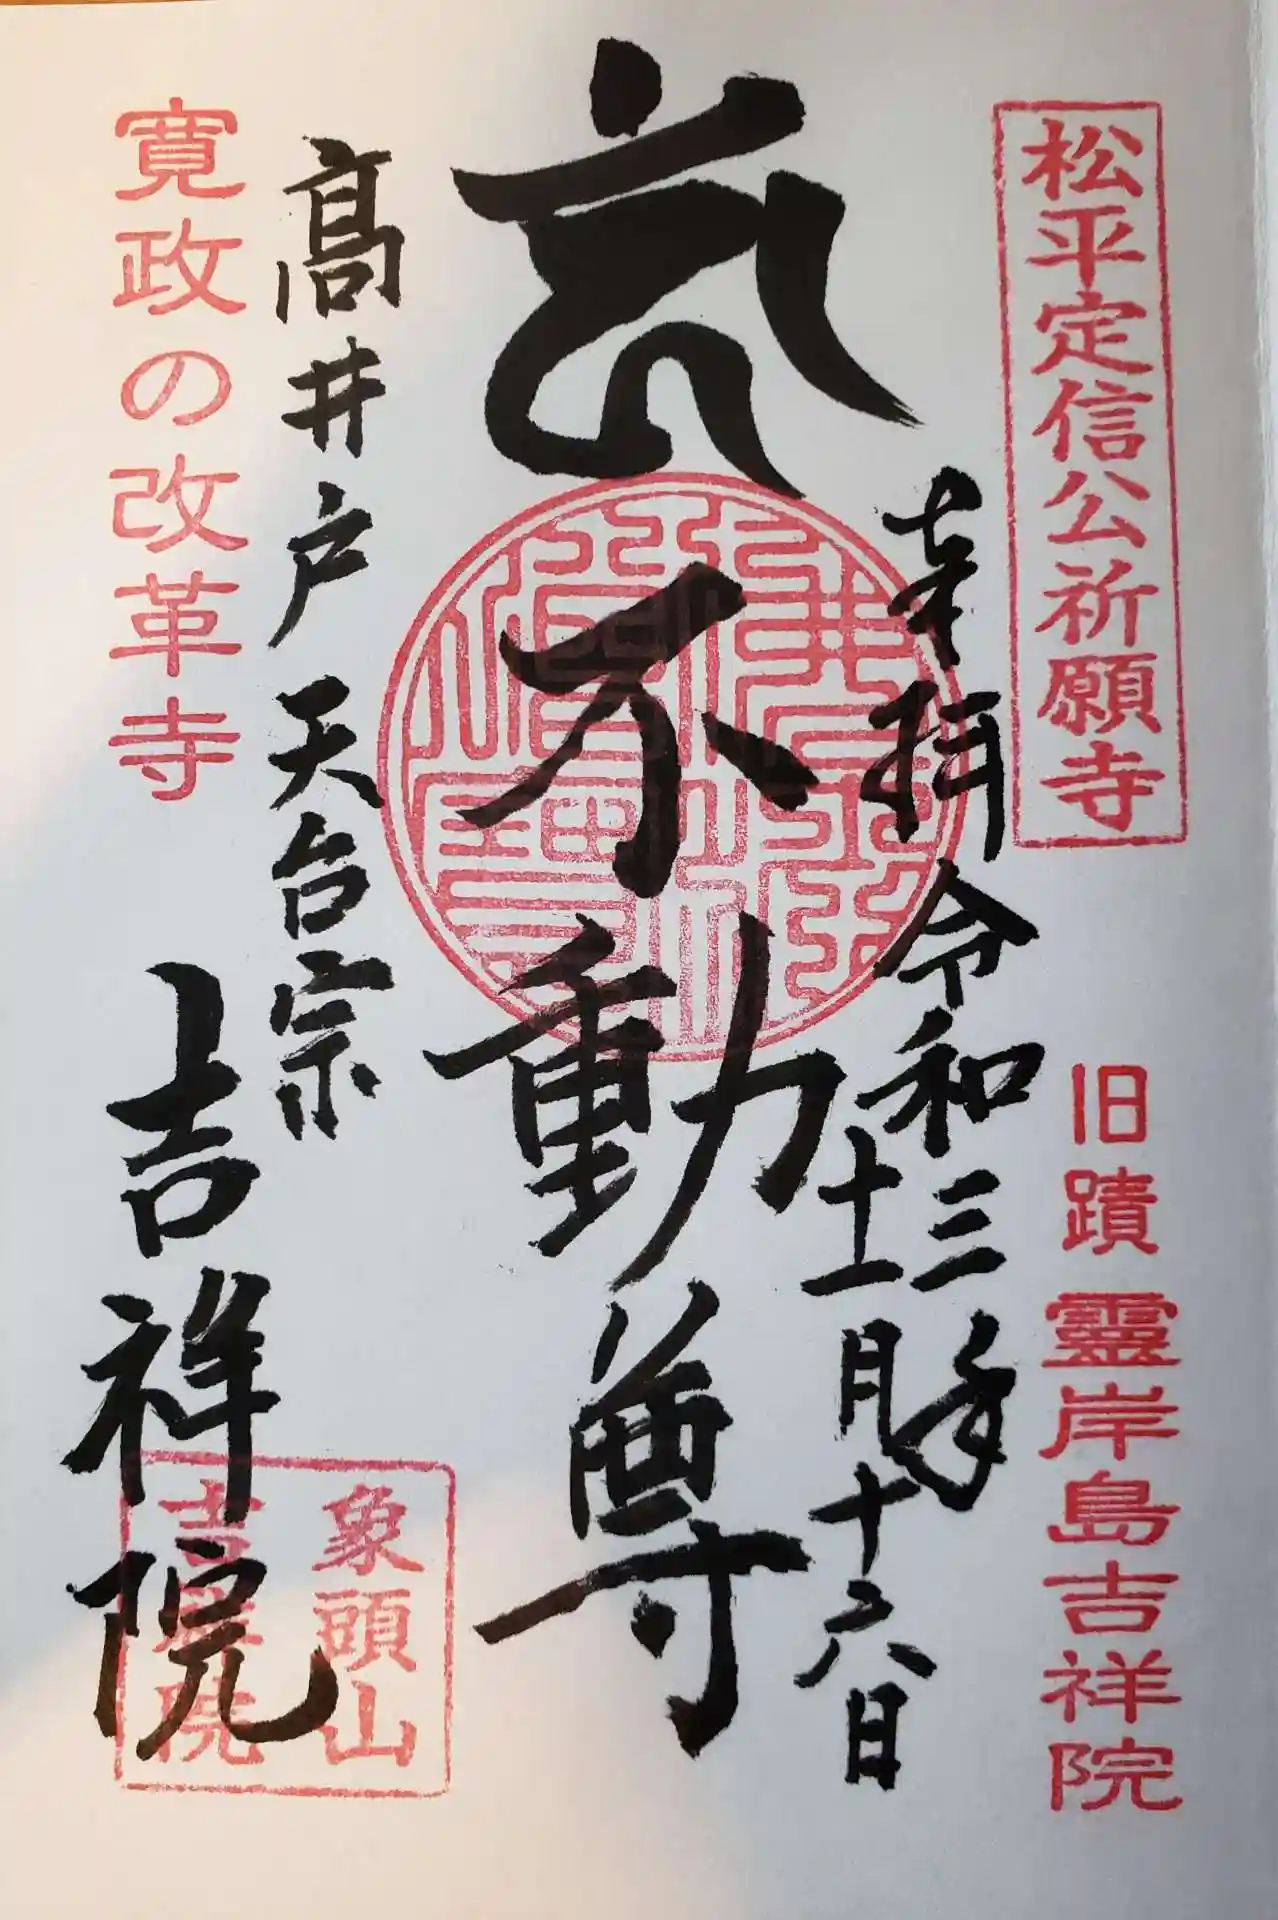 松平定信公祈願寺
旧蹟 靈岸島吉祥院
奉拝 令和三年
十一月十六日
不動尊
高井戸 天台宗
吉祥院
寛政の改革寺
象頭山
吉祥院